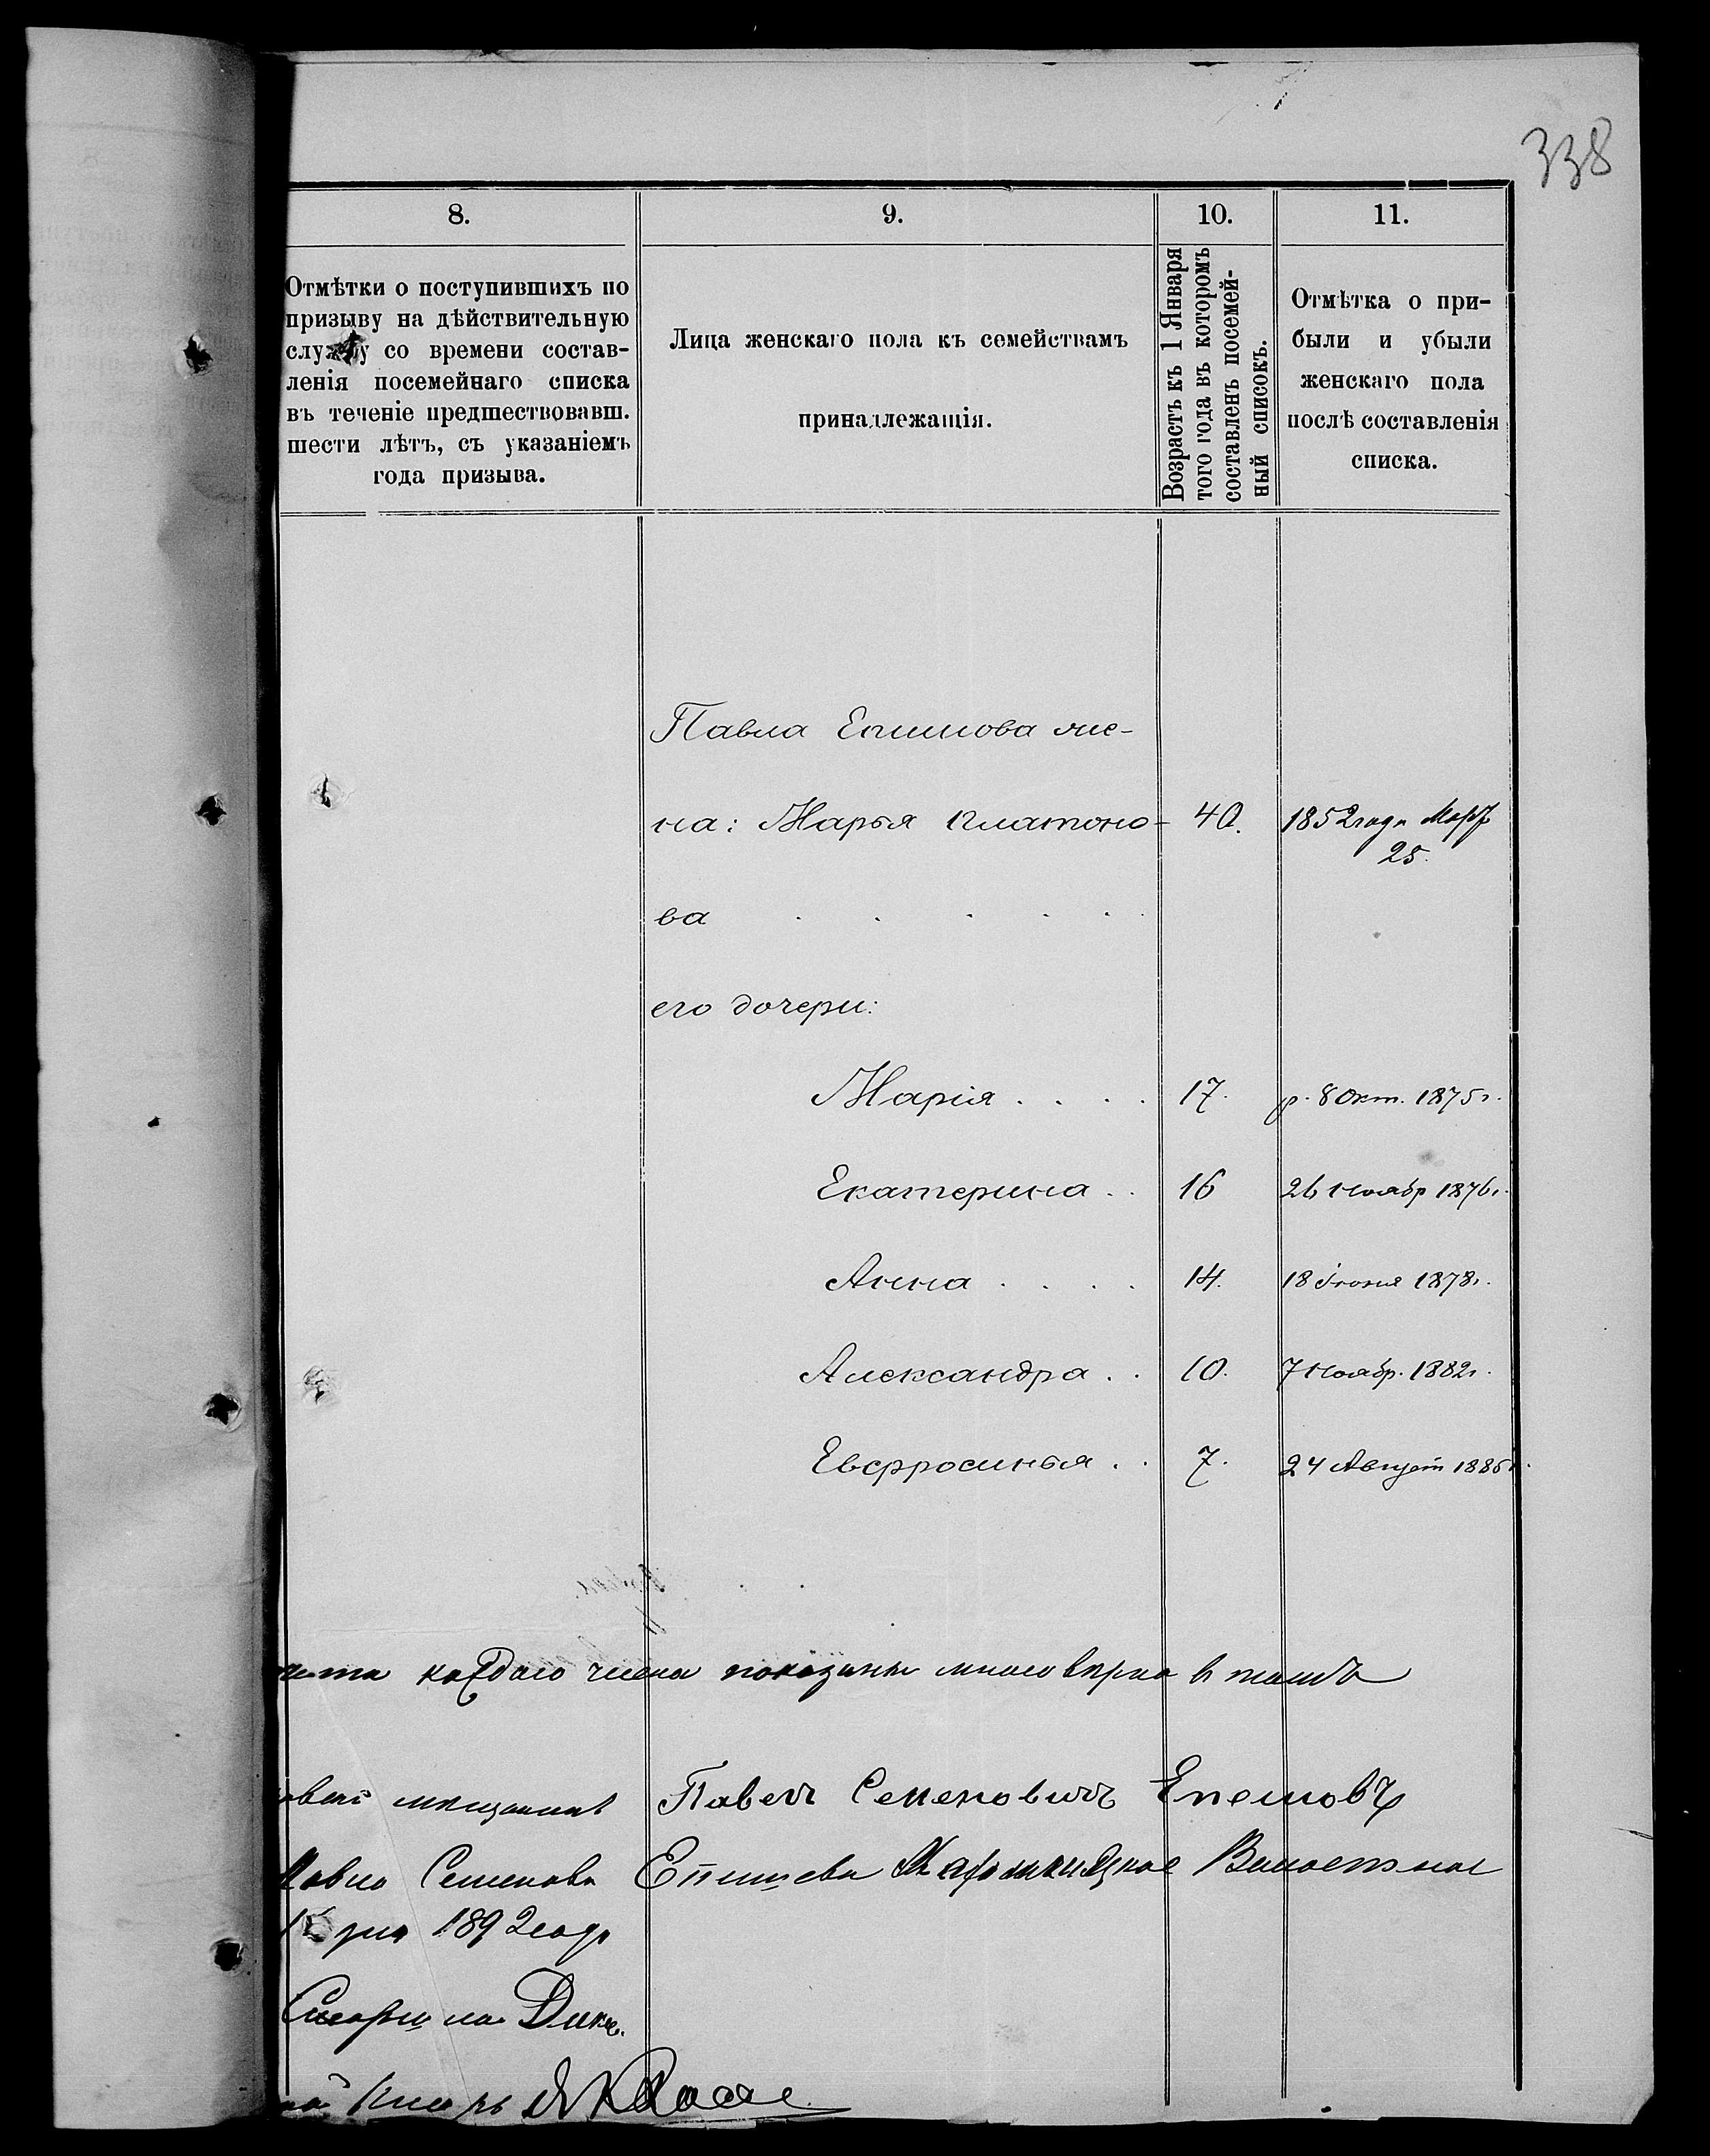 338
8.
9.
10.
11.
Отмѣтки о поступившихъ по
призыву на дѣйствительную
службу со времени состав-
ленія посемейнаго списка
въ теченіе предшествовавш.
шести лѣтъ, съ указаніемъ
года призыва.
Лица женскаго пола къ семействамъ
принадлежащія.
Возрастъ къ 1 Января
того года въ которомъ
составленъ посемей-
ный списокъ.
Отмѣтка о при-
были и убыли
женскаго пола
послѣ составленія
списка.
Павла Епишова же-
на: Марья Платоно- 40. 1852 года
25.
ва
его дочери:
Марія . . . . 17. р. 8 Окт. 1875 г.
Екатерина . . 16 26 Ноябр 1876 г.
Анна . . . . 14. 18 Іюня 1878 г.
Александра . . 10. 7 Ноябр. 1882 г.
Евфросинья . . 7. 24 Август 1885 г.
каждаго члена показаны мною вѣрно в томъ
мещанинъ Павелъ Семеновичъ Епешовъ
Павла Семенова Епишева
1892 года